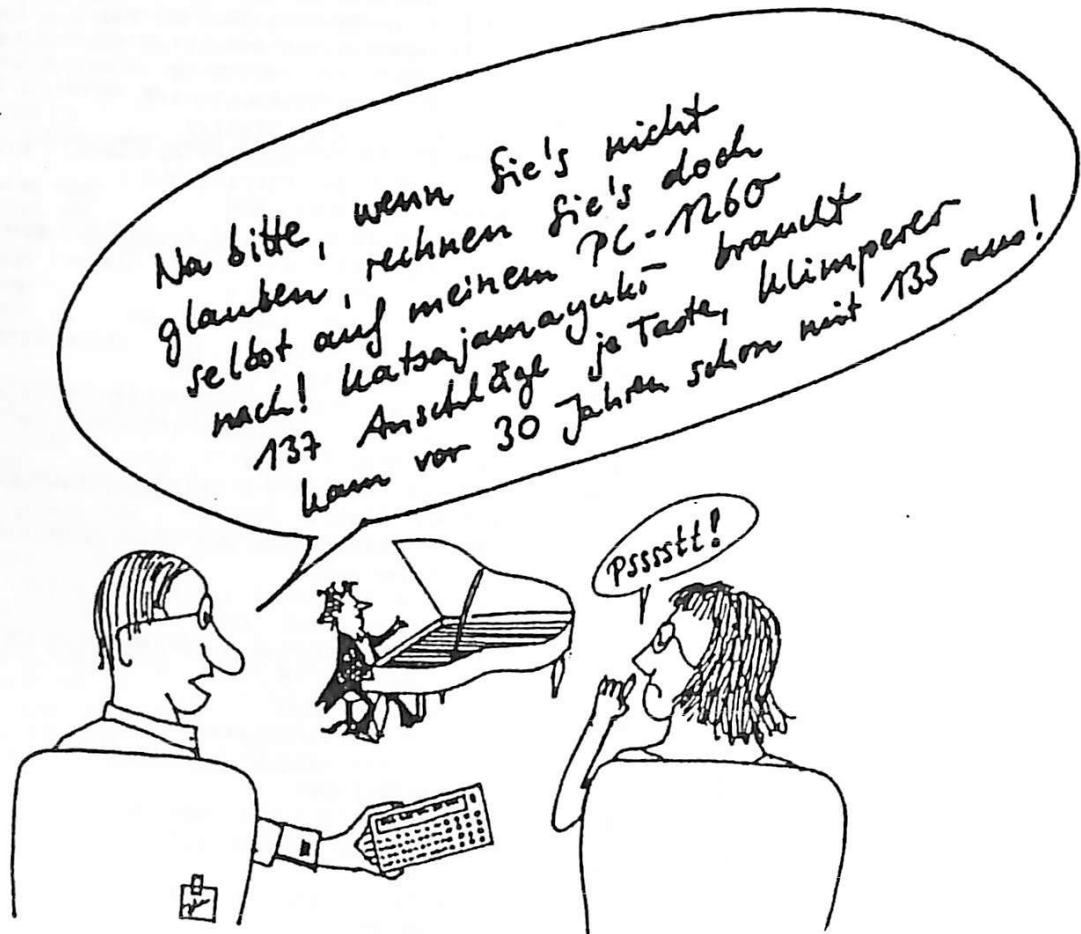 Na bitte, wenn Sie's nicht
glauben, rechnen Sie's doch
selbst auf meinem PC-1260
nach! Katsajamayuki braucht
137 Anschläge je Taste, Klimperer
kam vor 30 Jahren schon mit 135 aus!
Psssstt!